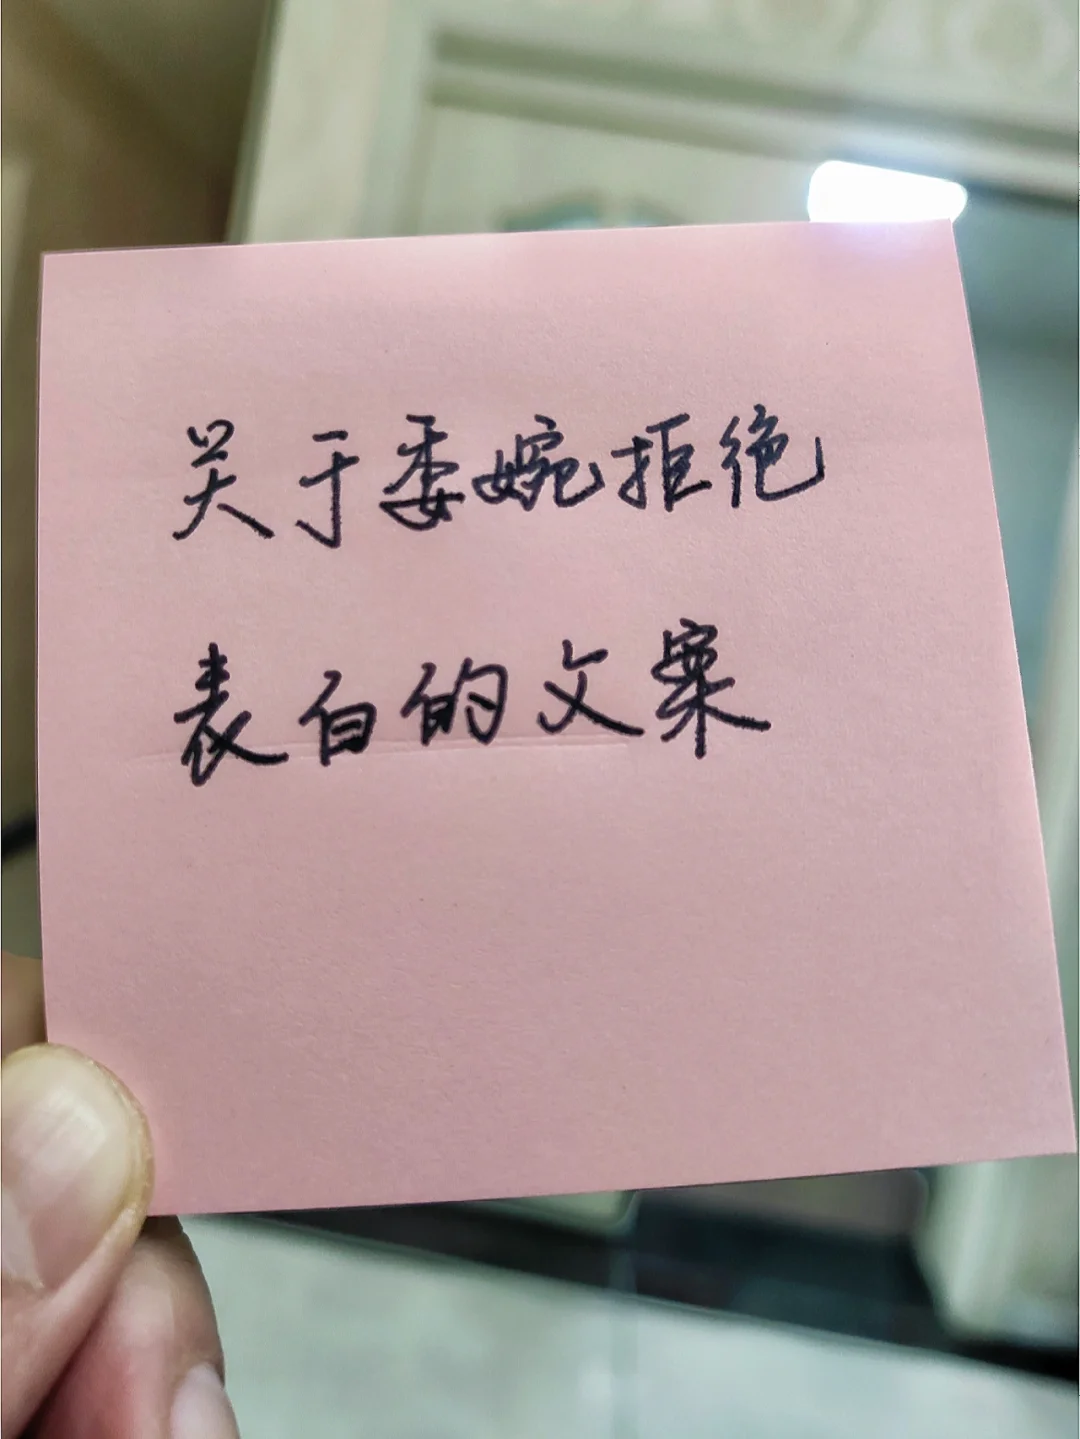 关于委婉拒绝
表白的文案